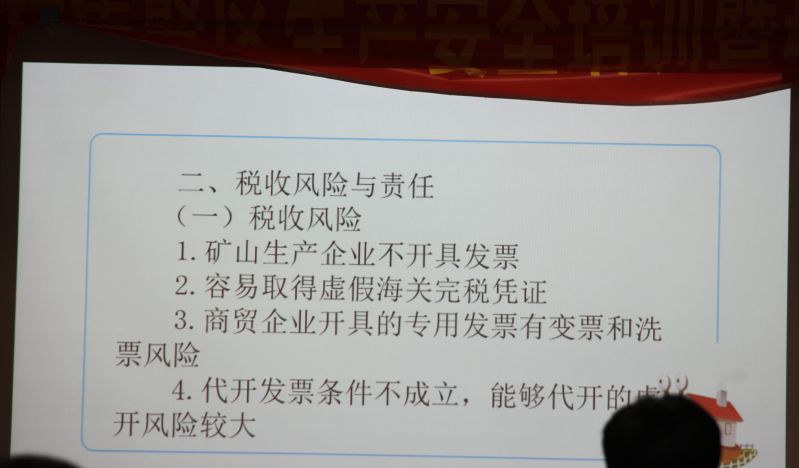 生产安全培训暨
二、税收风险与责任
（一）税收风险
1.矿山生产企业不开具发票
2.容易取得虚假海关完税凭证
3.商贸企业开具的专用发票有变票和洗
票风险
4.代开发票条件不成立，能够代开的虚
开风险较大